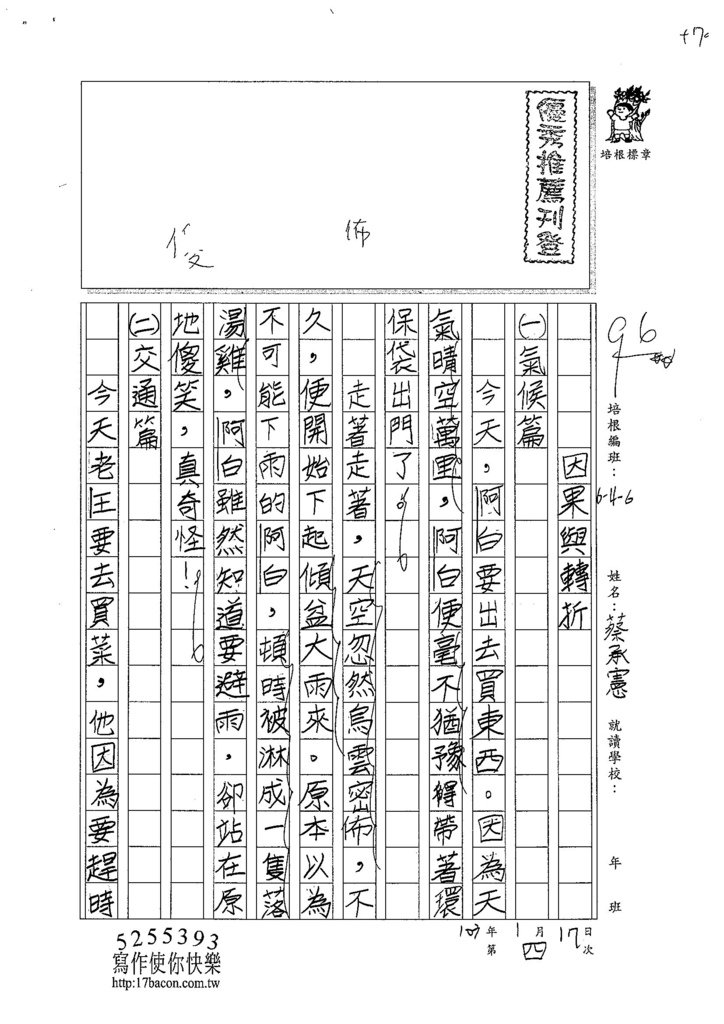 優秀推薦刊登
培根標章
佈
傻
96
培根編班：6-4-6
姓名：蔡承憲
就讀學校：
年 班
因果與轉折
(一)氣候篇
今天，阿白要出去買東西。因為天
氣晴空萬里，阿白便毫不猶豫得帶著環
保袋出門了。
走著走著，天空忽然烏雲密佈，不
久，便開始下起傾盆大雨來。原本以為
不可能下雨的阿白，頓時被淋成一隻落
湯雞，阿白雖然知道要避雨，卻站在原
地傻笑，真奇怪！
(二)交通篇
今天老王要去買菜，他因為要趕時
107年1月17日
第四次
5255393
寫作使你快樂
http:17bacon.com.tw